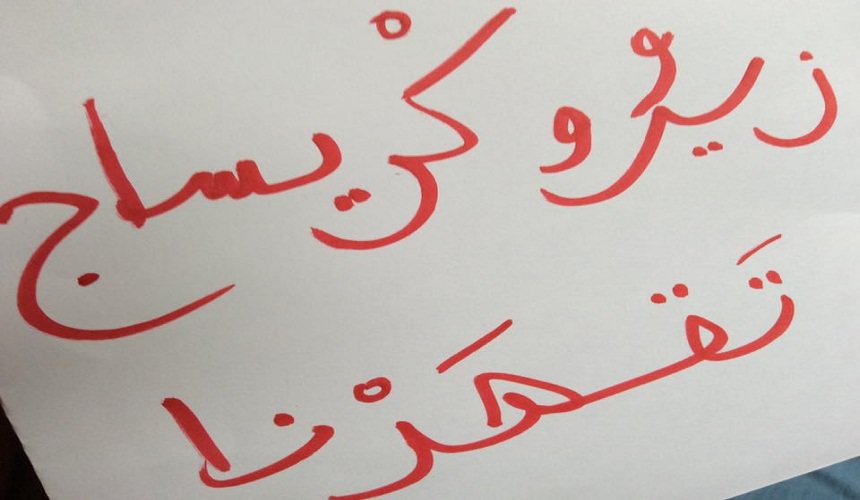 زيرُو كرْيساج
تَقهَرْنا